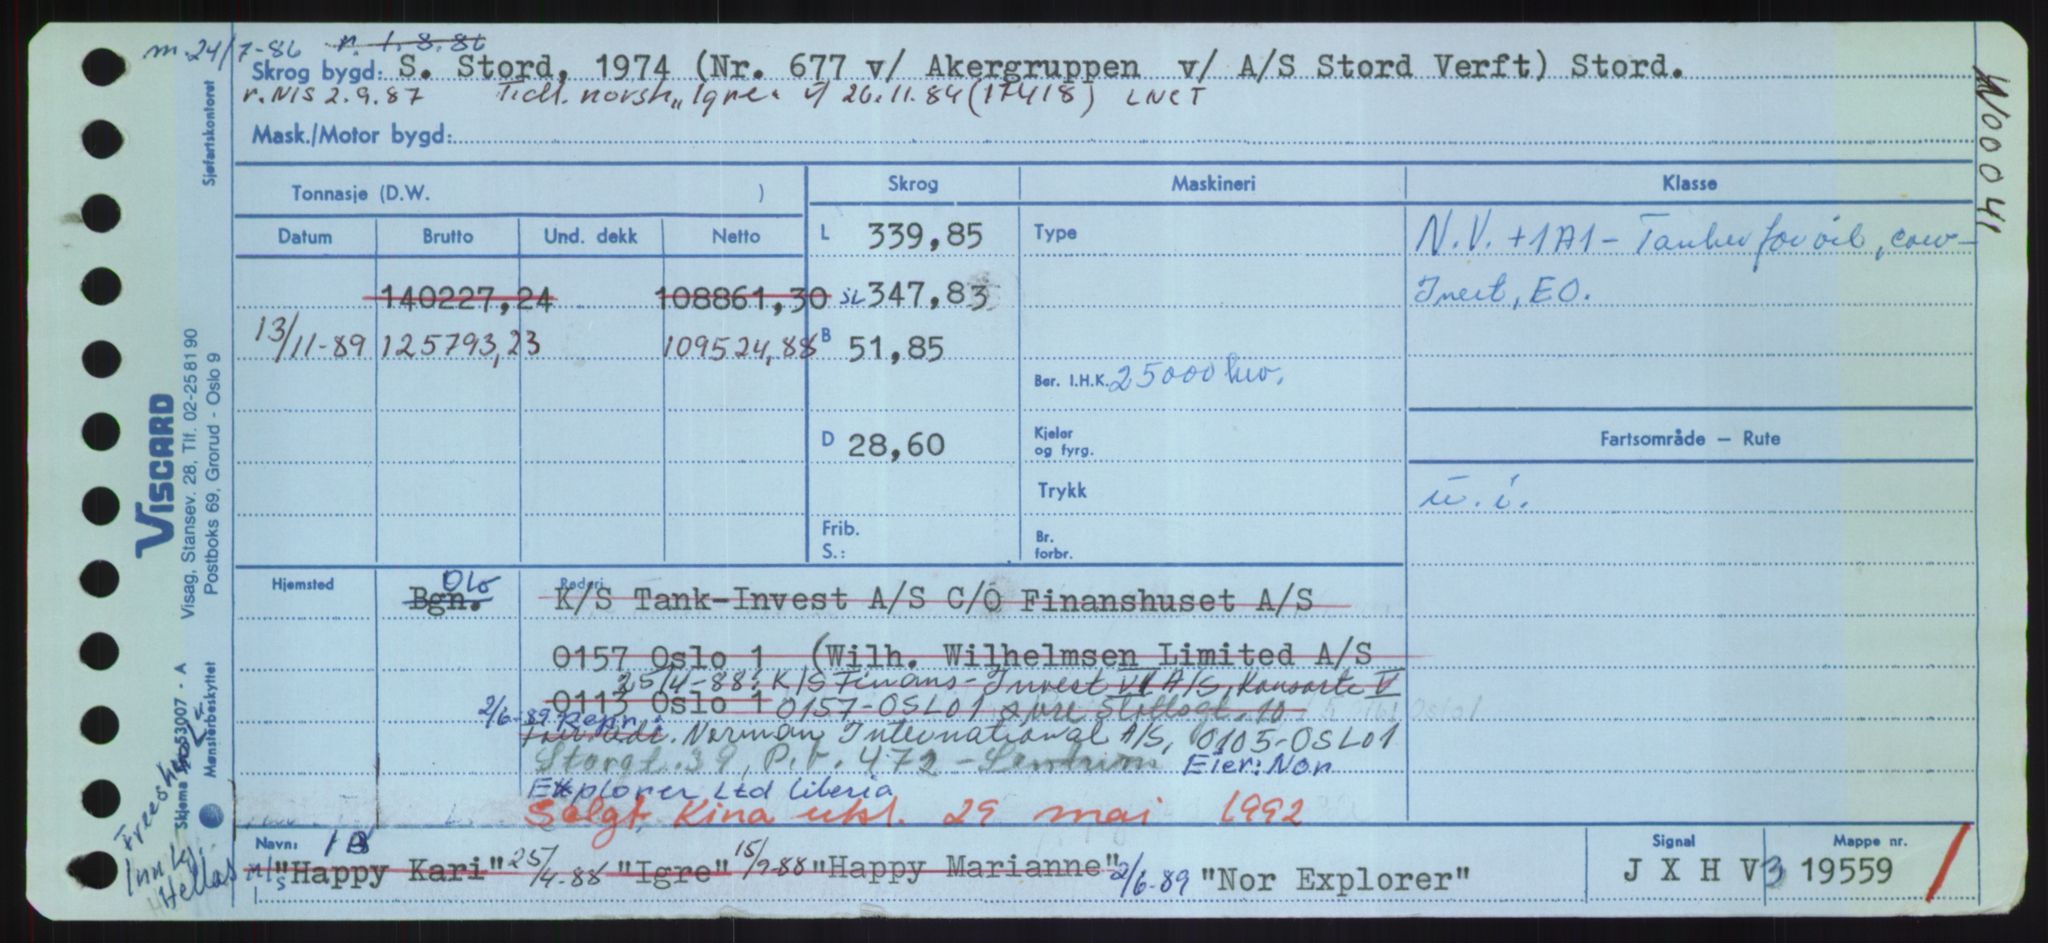 m. 24/7-86 r. 1.8.86
Skrog bygd: S. Stord, 1974 (Nr. 677 v/ Akergruppen v/ A/S Stord Verft) Stord.
r. NIS 2.9.87 Tidl. norsk "Igre" 26.11.84 (17418) LNCT
Mask./Motor bygd:
Tonnasje (D.W. )
Skrog
Maskineri
Klasse
Datum Brutto Und. dekk Netto
L 339,85
Type
N.V. +1A1 - Tanker for oil, cow-
140227,24 108861,30
SL 347,83
Inert, EO.
13/11-89 125793,23 109524,88
B 51,85
Ber. I.H.K. 25000
D 28,60
Kjeler og fyrg.
Fartsområde — Rute
Trykk
u. i.
Frib. S.:
Br. forbr.
Hjemsted
Bgn. Olo
Rederi
K/S Tank-Invest A/S C/O Finanshuset A/S
0157 Oslo 1 (Wilh. Wilhelmsen Limited A/S
25/4-88: K/S Finans-Invest VI A/S, Konsorte V
0113 Oslo 1 0157-OSLO 1 Øvre Slottsgt. 10
2/6-89 Repr.:
Norman International A/S, 0105-OSLO 1
Storgt. 39, P.b. 472 - Sentrum Eier: Nor
Explorer Ltd Liberia
Solgt Kina 29 mai 1992
Navn: 1B
"Happy Kari" 25/4-88 "Igre" 15/9-88 "Happy Marianne" 2/6-89 "Nor Explorer"
Signal
J X H V 3
Mappe nr.
19559
W00041
Sjøfartskontoret
VISCARD
Visag, Stansev. 28, Tlf. 02-25 81 90
Postboks 69, Grorud - Oslo 9
Skjema 53007 - A
Mønsterbeskyttet
Hellas